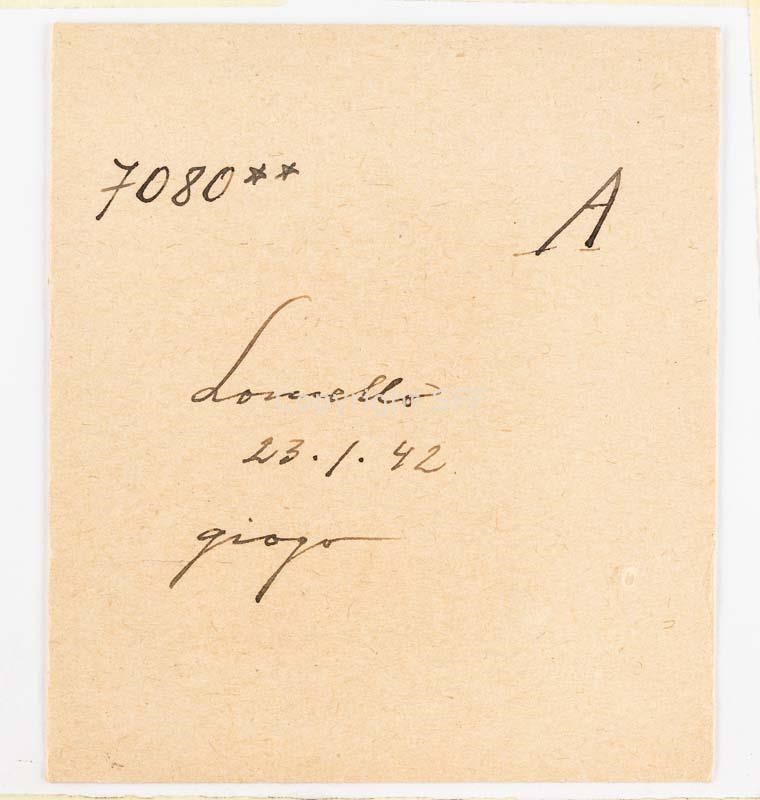 7080** A
Lomello
23.1.42
giogo